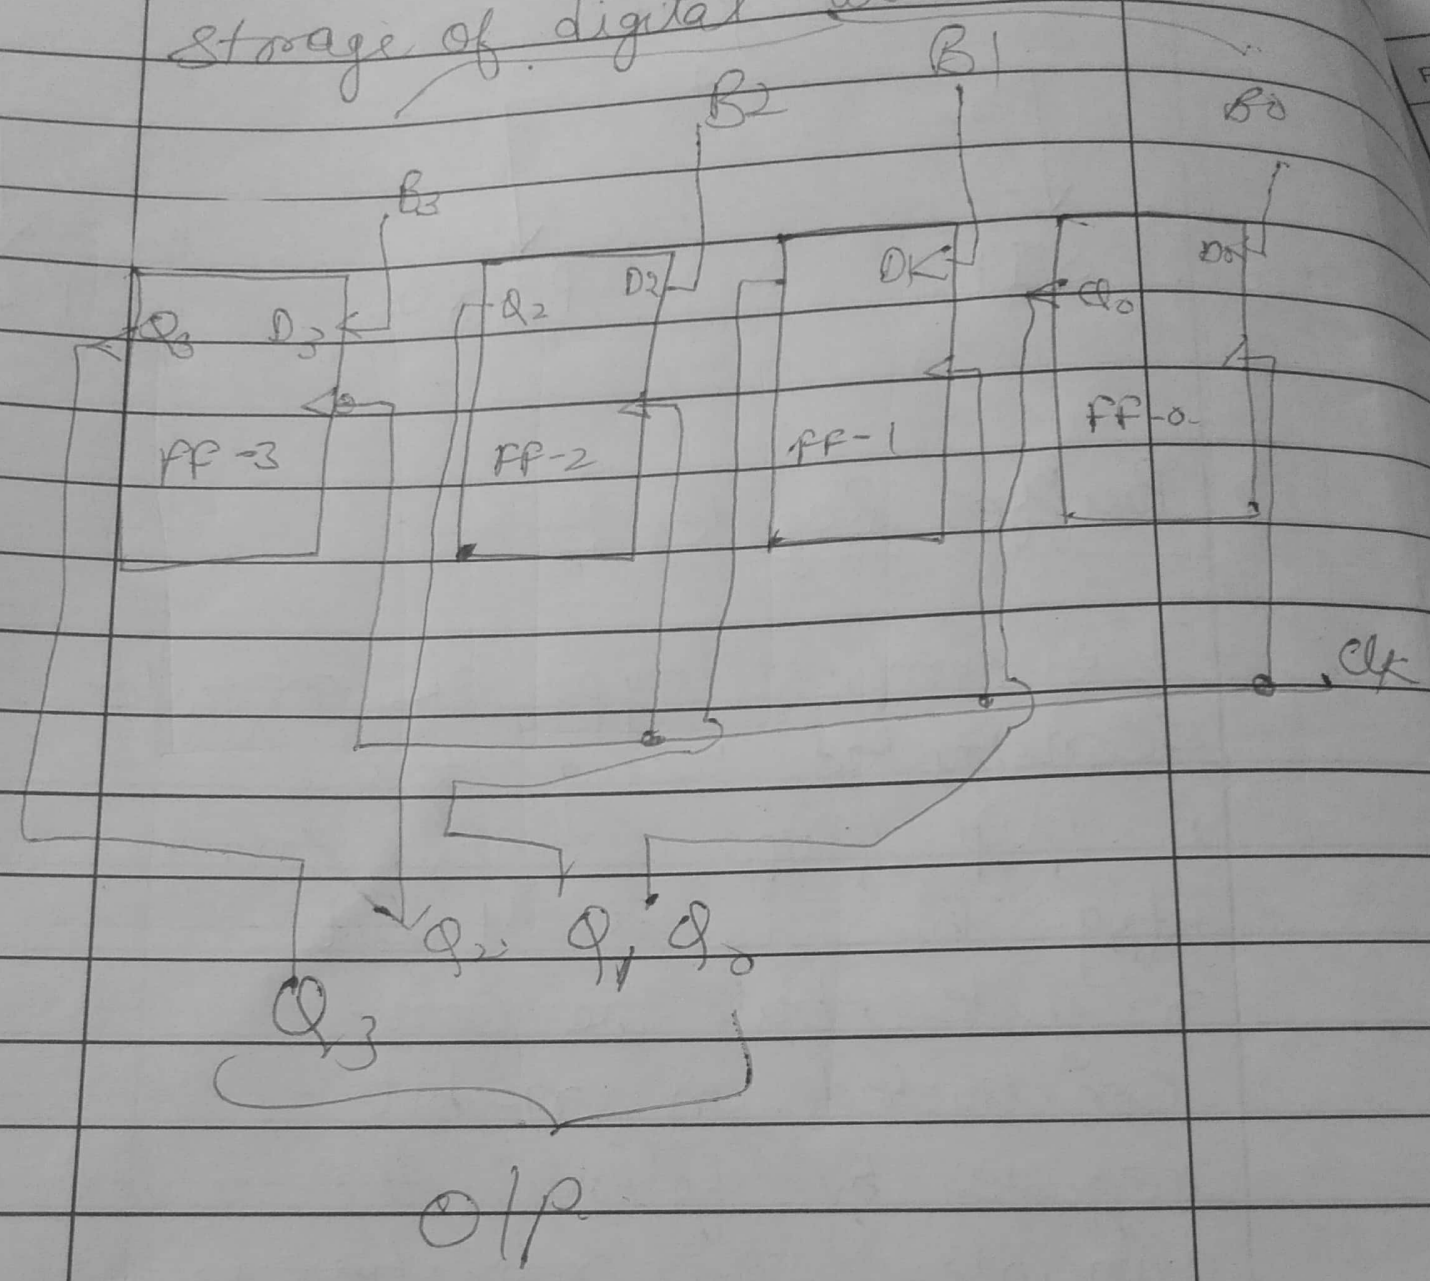 Storage of digital
B1
B2
B0
B3
Q3 D3 Q2 D2 D1 Q0 D0
FF-3 FF-2 FF-1 FF-0
Clk
Q2 Q1 Q0
Q3
O/P